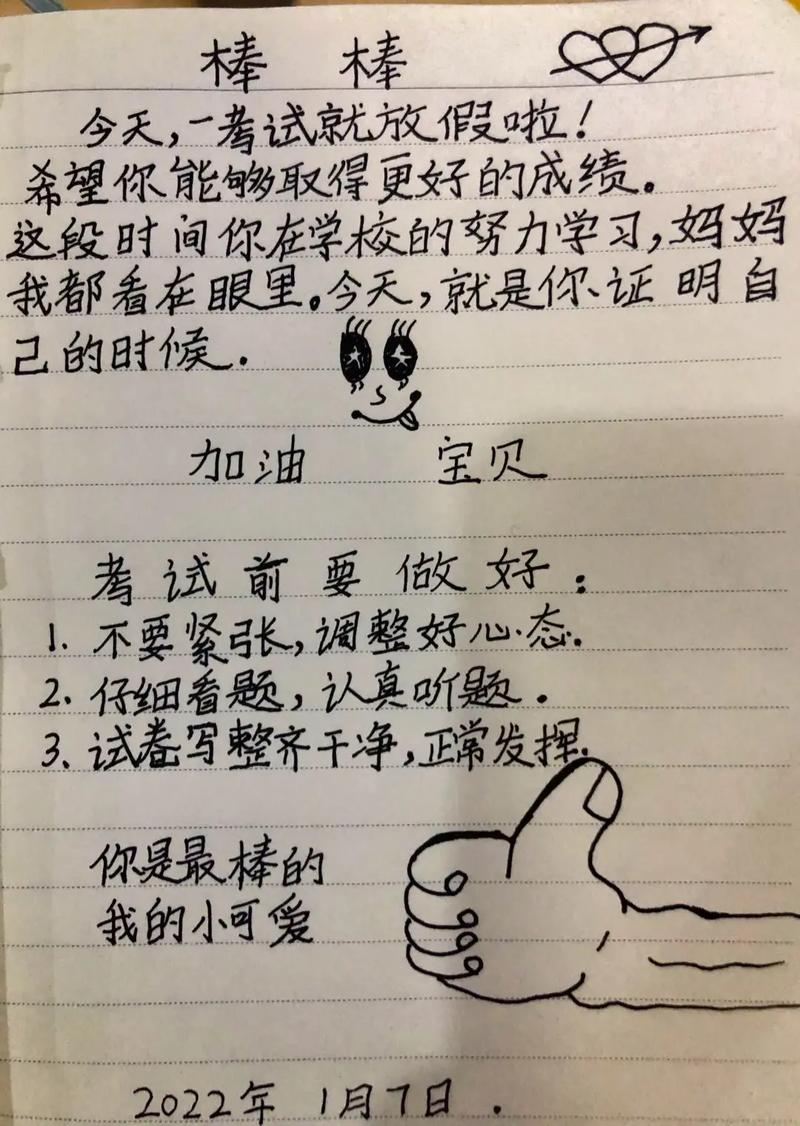 棒 棒
今天,一考试就放假啦!
希望你能够取得更好的成绩。
这段时间你在学校的努力学习,妈妈
我都看在眼里。今天,就是你、证明自
己的时候.
加油 宝贝
考试前要做好:
1. 不要紧张,调整好心态.
2. 仔细看题,认真听题.
3、试卷写整齐干净,正常发挥.
你是最棒的
我的小可爱
2022年 1月7日.